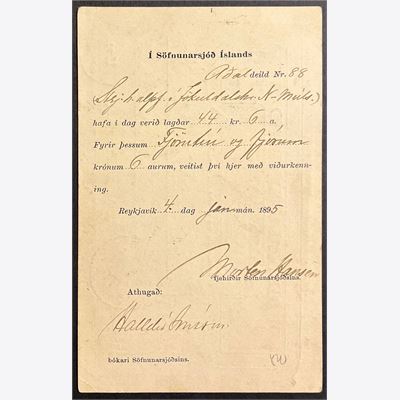 Í Söfnunarsjóð Íslands
Aðal deild Nr. 88
í Jökuldalshr. N-Múls.)
hafa í dag verið lagðar 44 kr. 6 a.
Fyrir þessum Fjörutíu og fjórum
krónum 6 aurum, veitist því hjer með viðurkenn-
ing.
Reykjavík 4. dag jan mán. 1895
Morten Hansen
fjehirðir Söfnunarsjóðsins.
Athugað:
Halldór Jónsson
bókari Söfnunarsjóðsins.